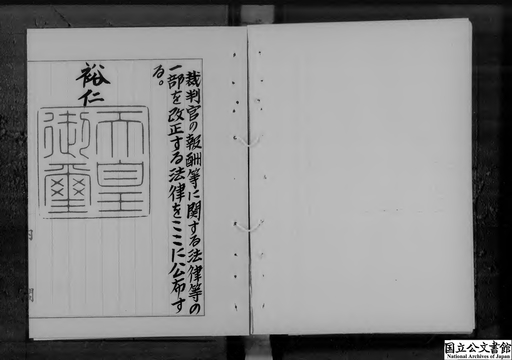 裁判官の報酬等に関する法律等の
一部を改正する法律をここに公布す
る。
裕仁
天皇
御璽
国立公文書館
National Archives of Japan